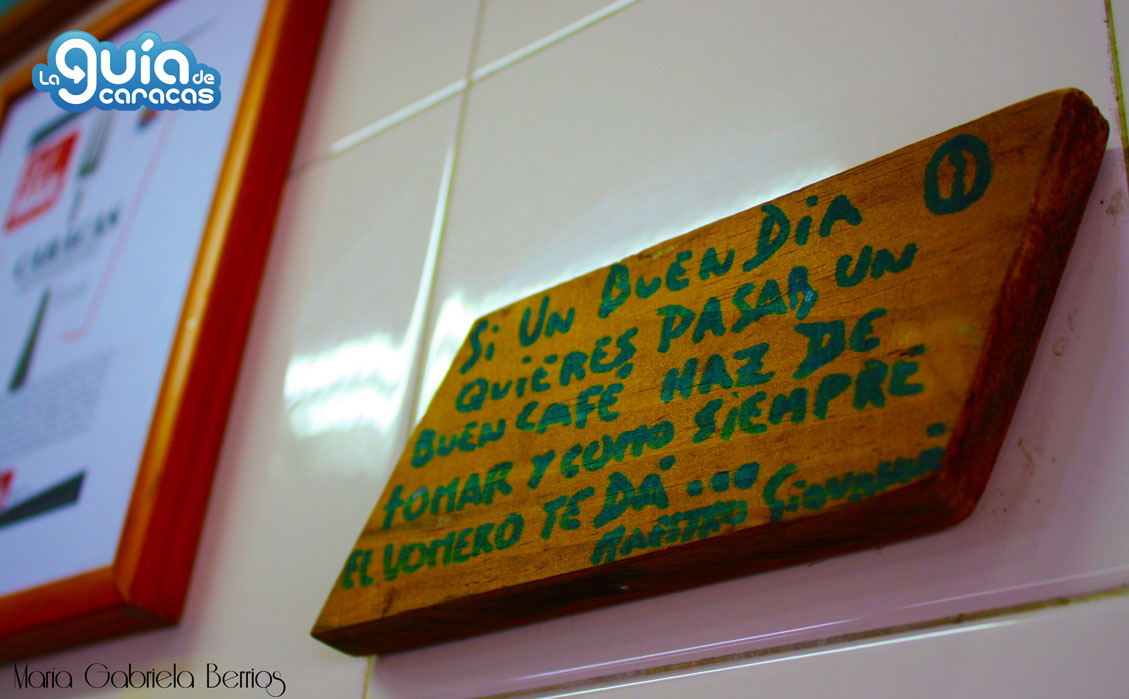 La guía de caracas
CARACAS
1
SI UN BUEN DIA
QUIERES PASAR UN
BUEN CAFÉ HAZ DE
TOMAR Y COMO SIEMPRE
EL VOMERO TE DÁ ...
MAESTRO GIOVANNI.
María Gabriela Berrios